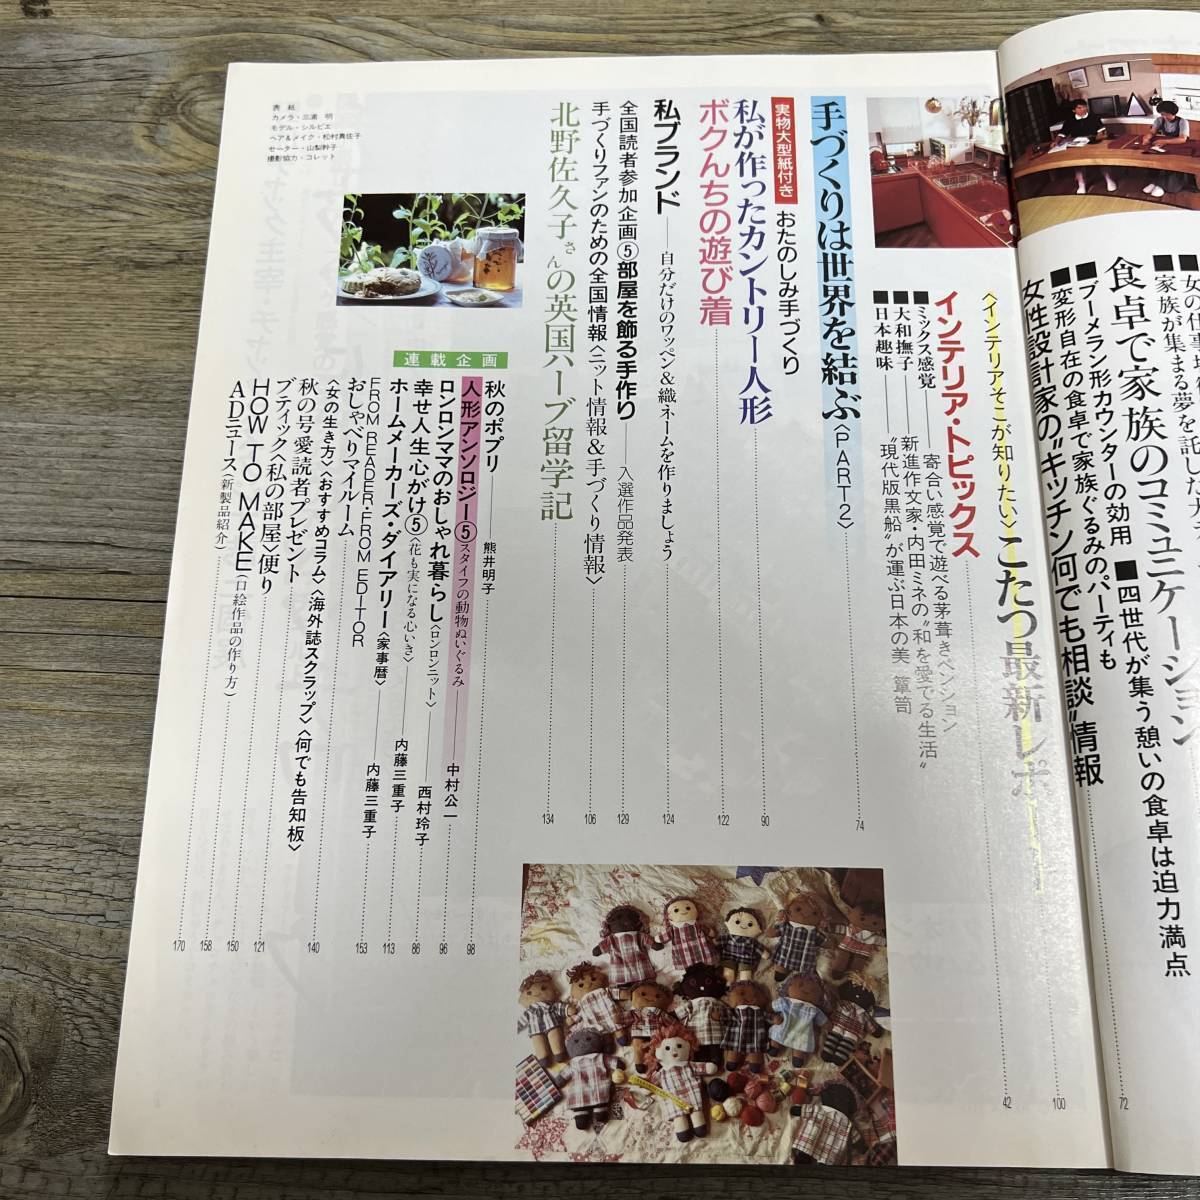 女の仕事
家族が集まる夢を託した
食卓で家族のコミュニケーション
■ブーメラン形カウンターの効用
■四世代が集う憩いの食卓は迫力満点
72
■変形自在の食卓で家族ぐるみのパーティも
女性設計家の"キッチン何でも相談"情報
100
〈インテリアそこが知りたい〉こたつ最新レポート
42
インテリア・トピックス
■ミックス感覚――寄合い感覚で遊べる茅葺きペンション
■大和撫子――新進作文家・内田ミネの"和を愛でる生活"
■日本趣味――"現代版黒船"が運ぶ日本の美 簞笥
手づくりは世界を結ぶ〈PART2〉
74
実物大型紙付き
おたのしみ手づくり
私が作ったカントリー人形
90
ボクんちの遊び着
122
私ブランド――自分だけのワッペン&織ネームを作りましょう
124
全国読者参加企画⑤部屋を飾る手作り――入選作品発表
129
手づくりファンのための全国情報〈ニット情報&手づくり情報〉
106
北野佐久子さんの英国ハーブ留学記
134
連載企画
秋のポプリ――熊井明子
98
人形アンソロジー⑤スタイフの動物ぬいぐるみ――中村公一
96
ロンロンママのおしゃれ暮らし〈ロンロンニット〉――西村玲子
86
幸せ人生心がけ⑤〈花も実になる心いき〉――内藤三重子
113
ホームメーカーズ・ダイアリー〈家事暦〉――内藤三重子
153
FROM READER, FROM EDITOR
おしゃべりマイルーム
〈女の生き方〉〈おすすめコラム〉〈海外誌スクラップ〉〈何でも告知板〉
140
秋の号愛読者プレゼント
ブティック〈私の部屋〉便り
121
HOW TO MAKE(口絵作品の作り方)
150
158
ADニュース(新製品紹介)
170
表紙
カメラ・三浦 明
モデル・シルビエ
ヘア&メイク・松村真佐子
セーター・山梨幹子
撮影協力・コレット